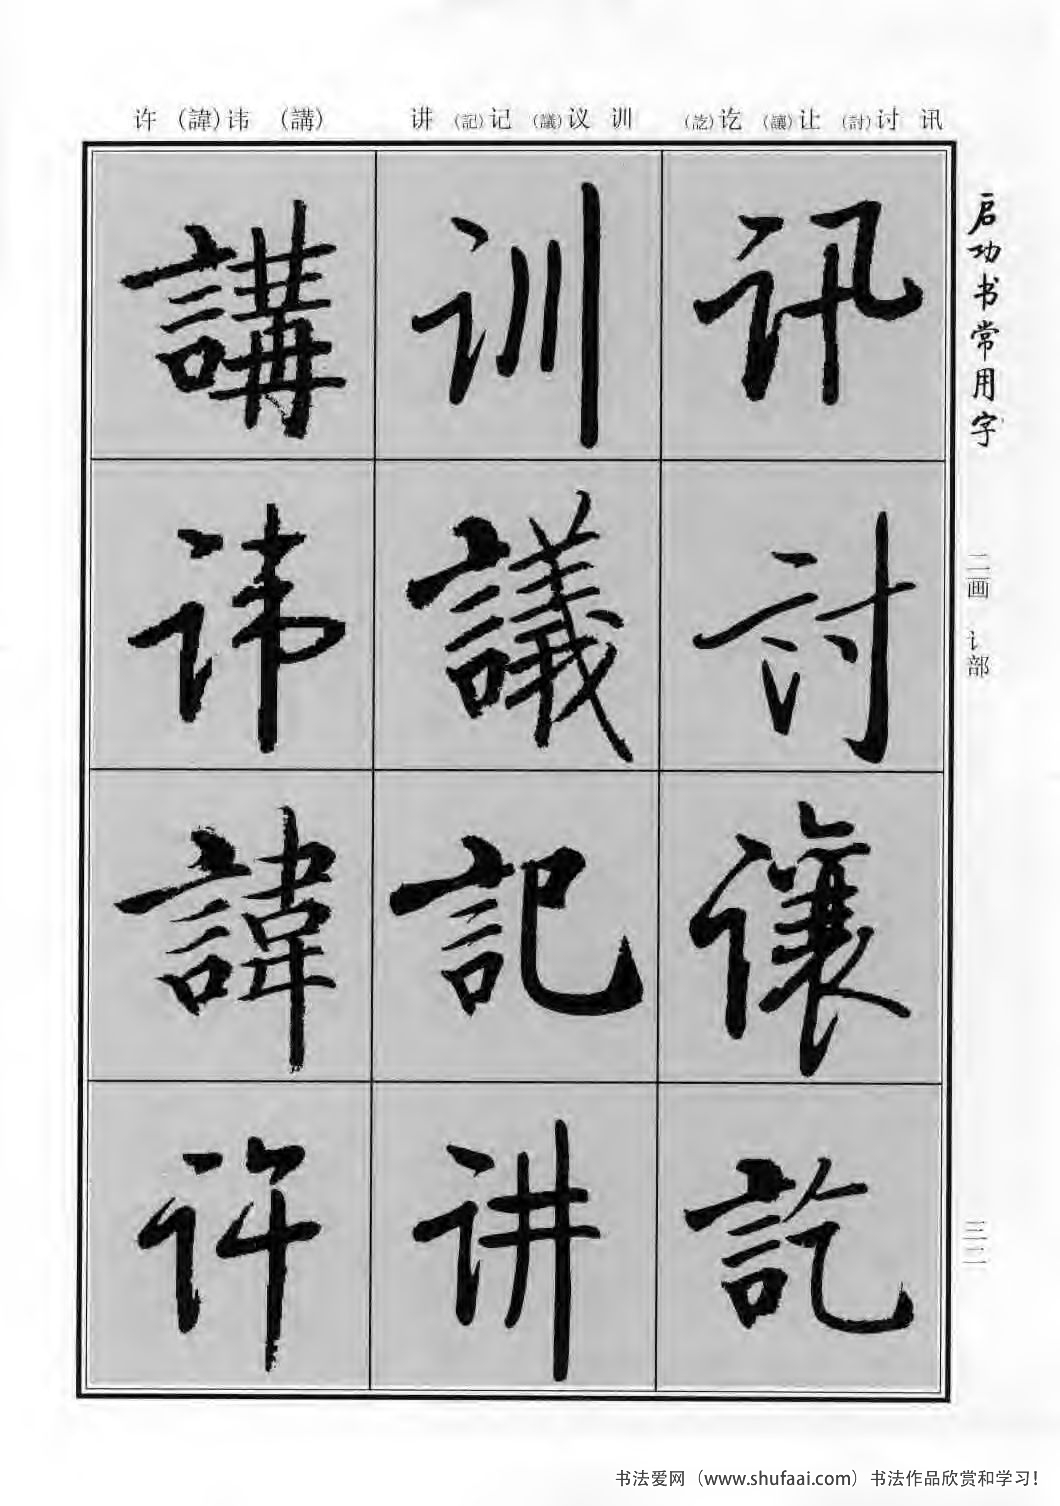 讯 讨(討) 让(讓) 讫(訖)
训 议(議) 记(記) 讲
(講) 讳(諱) 许
讯
討
讓
訖
训
議
記
讲
講
讳
諱
许
启功书常用字
二画 讠部
三二
书法爱网（www.shufaai.com）书法作品欣赏和学习！